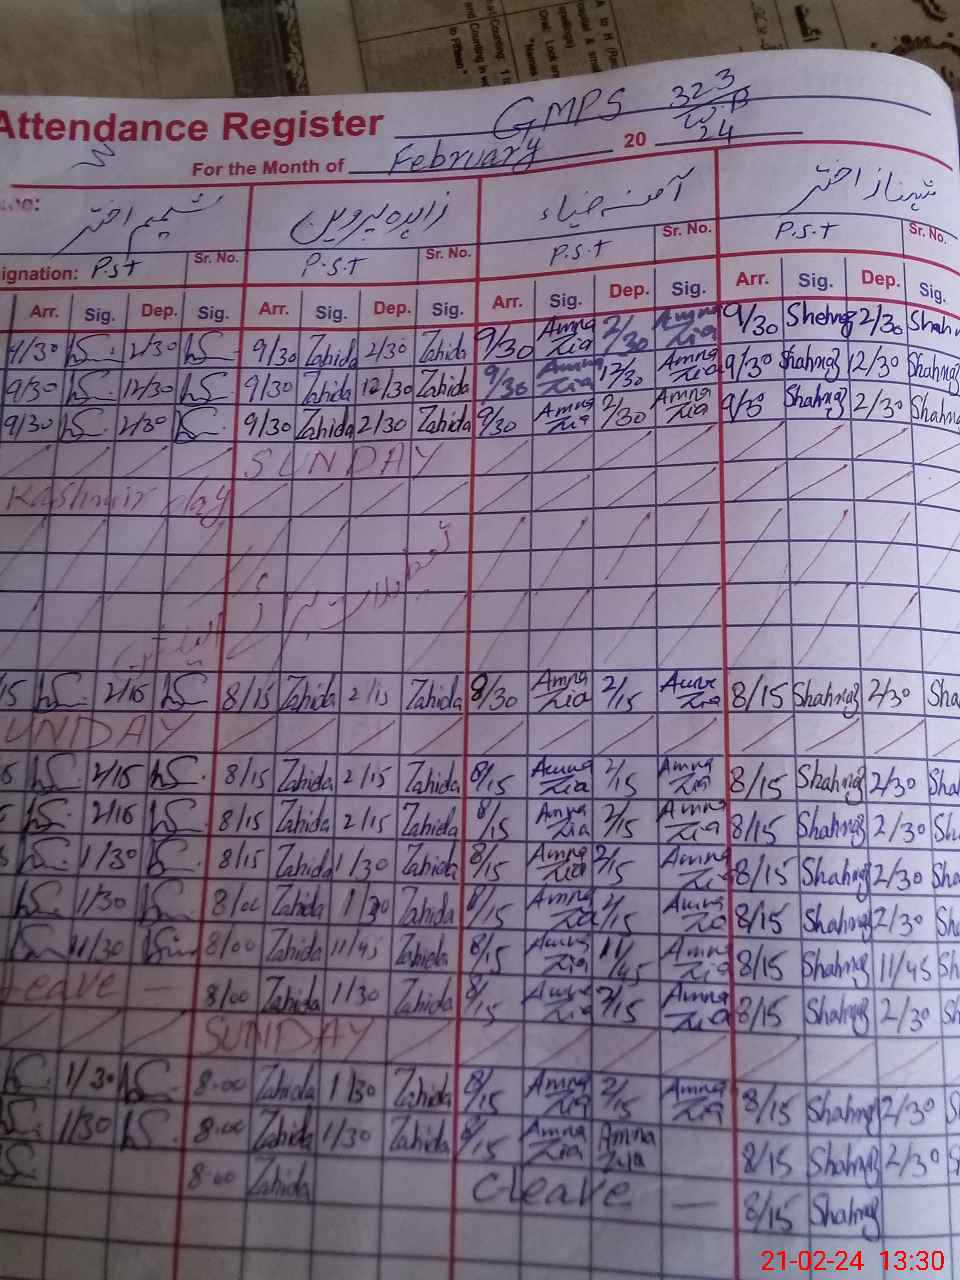 Attendance Register GMPS 323/W.B
For the Month of February 20 24
شمیم اختر زاہدہ پروین آمنہ ضیاء شہناز اختر
ignation: P.S.T Sr. No. P.S.T Sr. No. P.S.T Sr. No. P.S.T Sr. No.
Arr. Sig. Dep. Sig. Arr. Sig. Dep. Sig. Arr. Sig. Dep. Sig. Arr. Sig. Dep. Sig.
9/30 2/30 9/30 Zahida 2/30 Zahida 9/30 Amna Zia 2/30 Amna Zia 9/30 Shahnaz 2/30 Shahn
9/30 12/30 9/30 Zahida 12/30 Zahida 9/30 Amna Zia 12/30 Amna Zia 9/30 Shahnaz 12/30 Shahna
9/30 2/30 9/30 Zahida 2/30 Zahida 9/30 Amna Zia 2/30 Amna Zia 9/30 Shahnaz 2/30 Shahna
SUNDAY
Kashmir Day
15 2/15 8/15 Zahida 2/15 Zahida 8/30 Amna Zia 2/15 Amna Zia 8/15 Shahnaz 2/30 Sha
UNDAY
5 2/15 8/15 Zahida 2/15 Zahida 8/15 Amna Zia 2/15 Amna Zia 8/15 Shahnaz 2/30 Sha
2/15 8/15 Zahida 2/15 Zahida 8/15 Amna Zia 2/15 Amna Zia 8/15 Shahnaz 2/30 Sh
1/30 8/15 Zahida 1/30 Zahida 8/15 Amna Zia 2/15 Amna Zia 8/15 Shahnaz 2/30 Sha
1/30 8/00 Zahida 1/30 Zahida 8/15 Amna Zia 2/15 Amna Zia 8/15 Shahnaz 2/30 Sh
11/30 8/00 Zahida 11/45 Zahida 8/15 Amna Zia 11/45 Amna Zia 8/15 Shahnaz 11/45 Sh
Leave — 8/00 Zahida 1/30 Zahida 8/15 Amna Zia 2/15 Amna Zia 8/15 Shahnaz 2/30 Sh
SUNDAY
1/30 8:00 Zahida 1/30 Zahida 8/15 Amna Zia 2/15 Amna Zia 8/15 Shahnaz 2/30 S
1/30 8:00 Zahida 1/30 Zahida 8/15 Amna Zia Amna Zia 8/15 Shahnaz 2/30 S
8:00 Zahida C-Leave — 8/15 Shahnaz
21-02-24 13:30